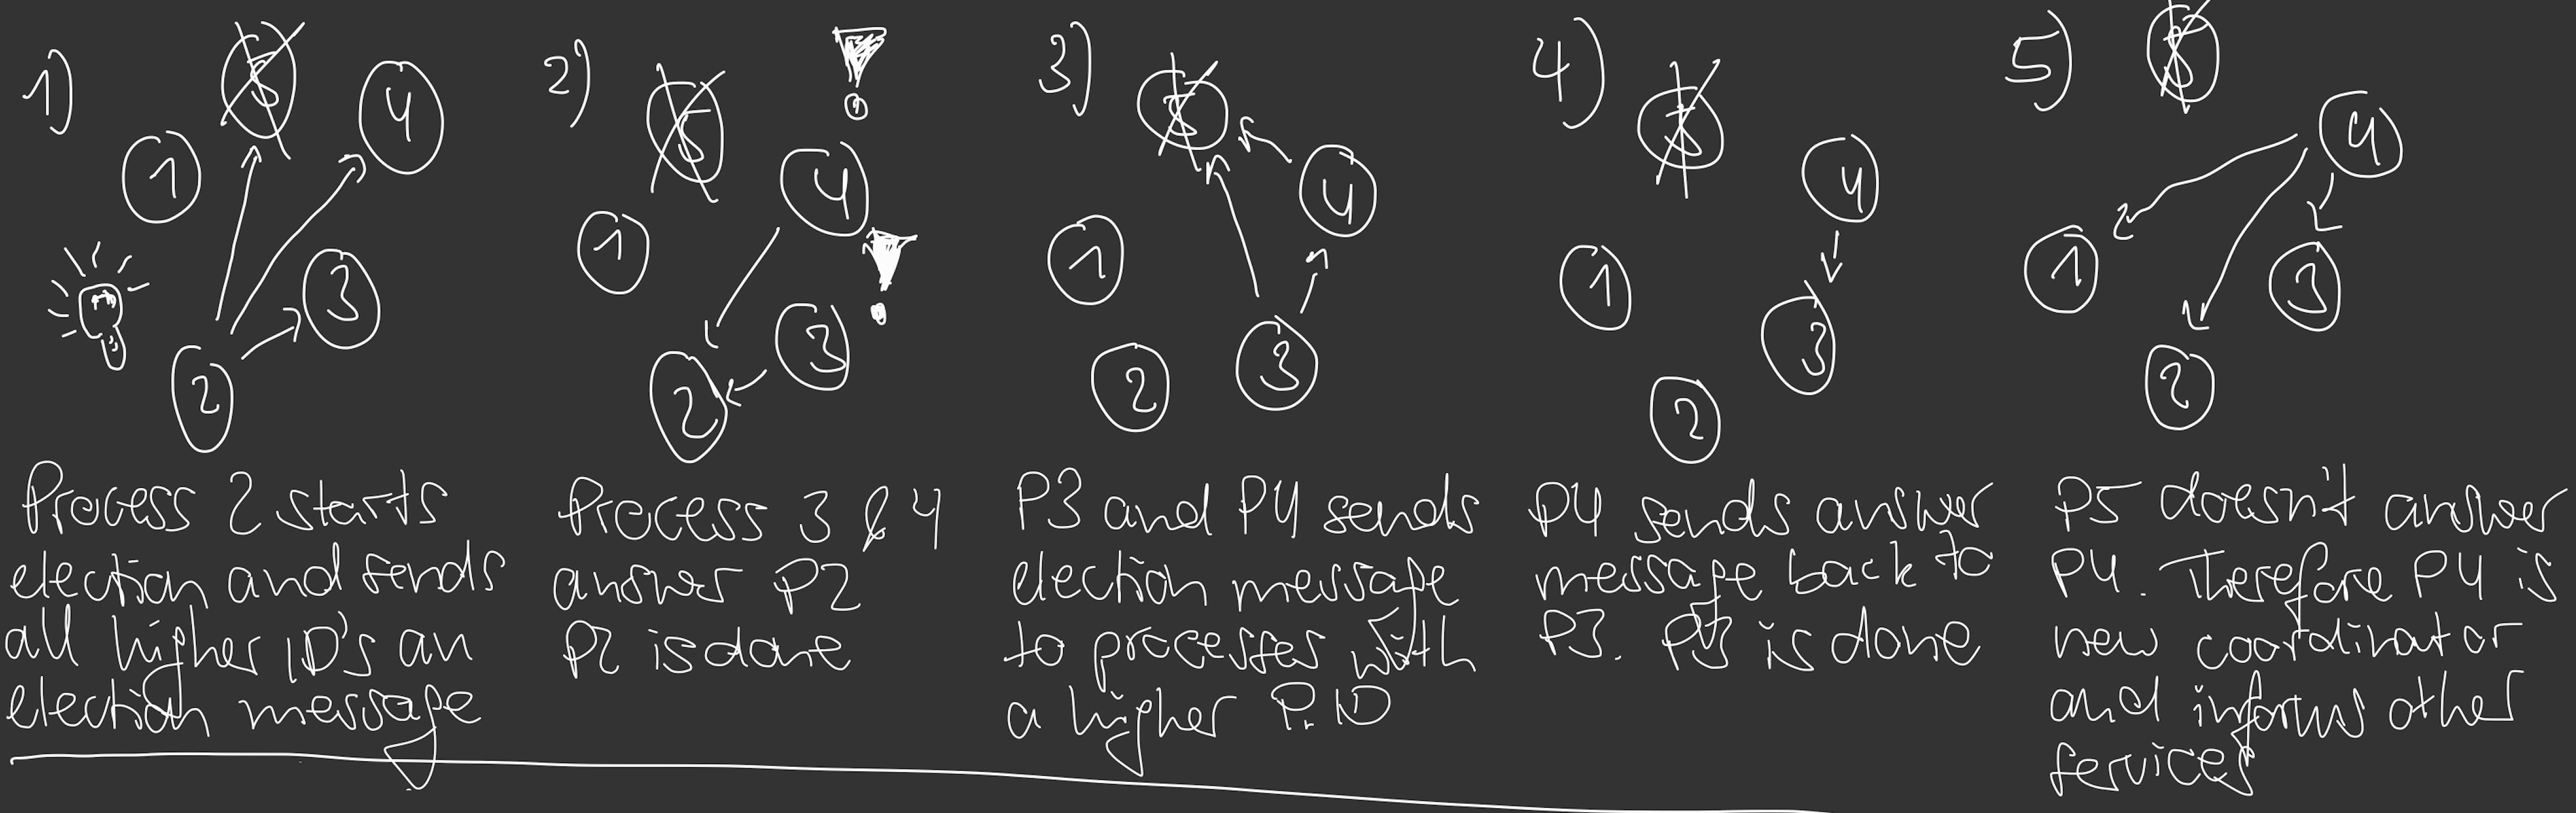 1)
5
4
1
3
2
2)
5
4
1
3
2
3)
5
4
1
3
2
4)
5
4
1
3
2
5)
5
4
1
3
2
Process 2 starts
election and sends
all higher ID's an
election message
Process 3 & 4
answer P2
P2 is done
P3 and P4 sends
election message
to processes with
a higher P.ID
P4 sends answer
message back to
P3. P3 is done
P5 doesn't answer
P4. Therefore P4 is
new coordinator
and informs other
services